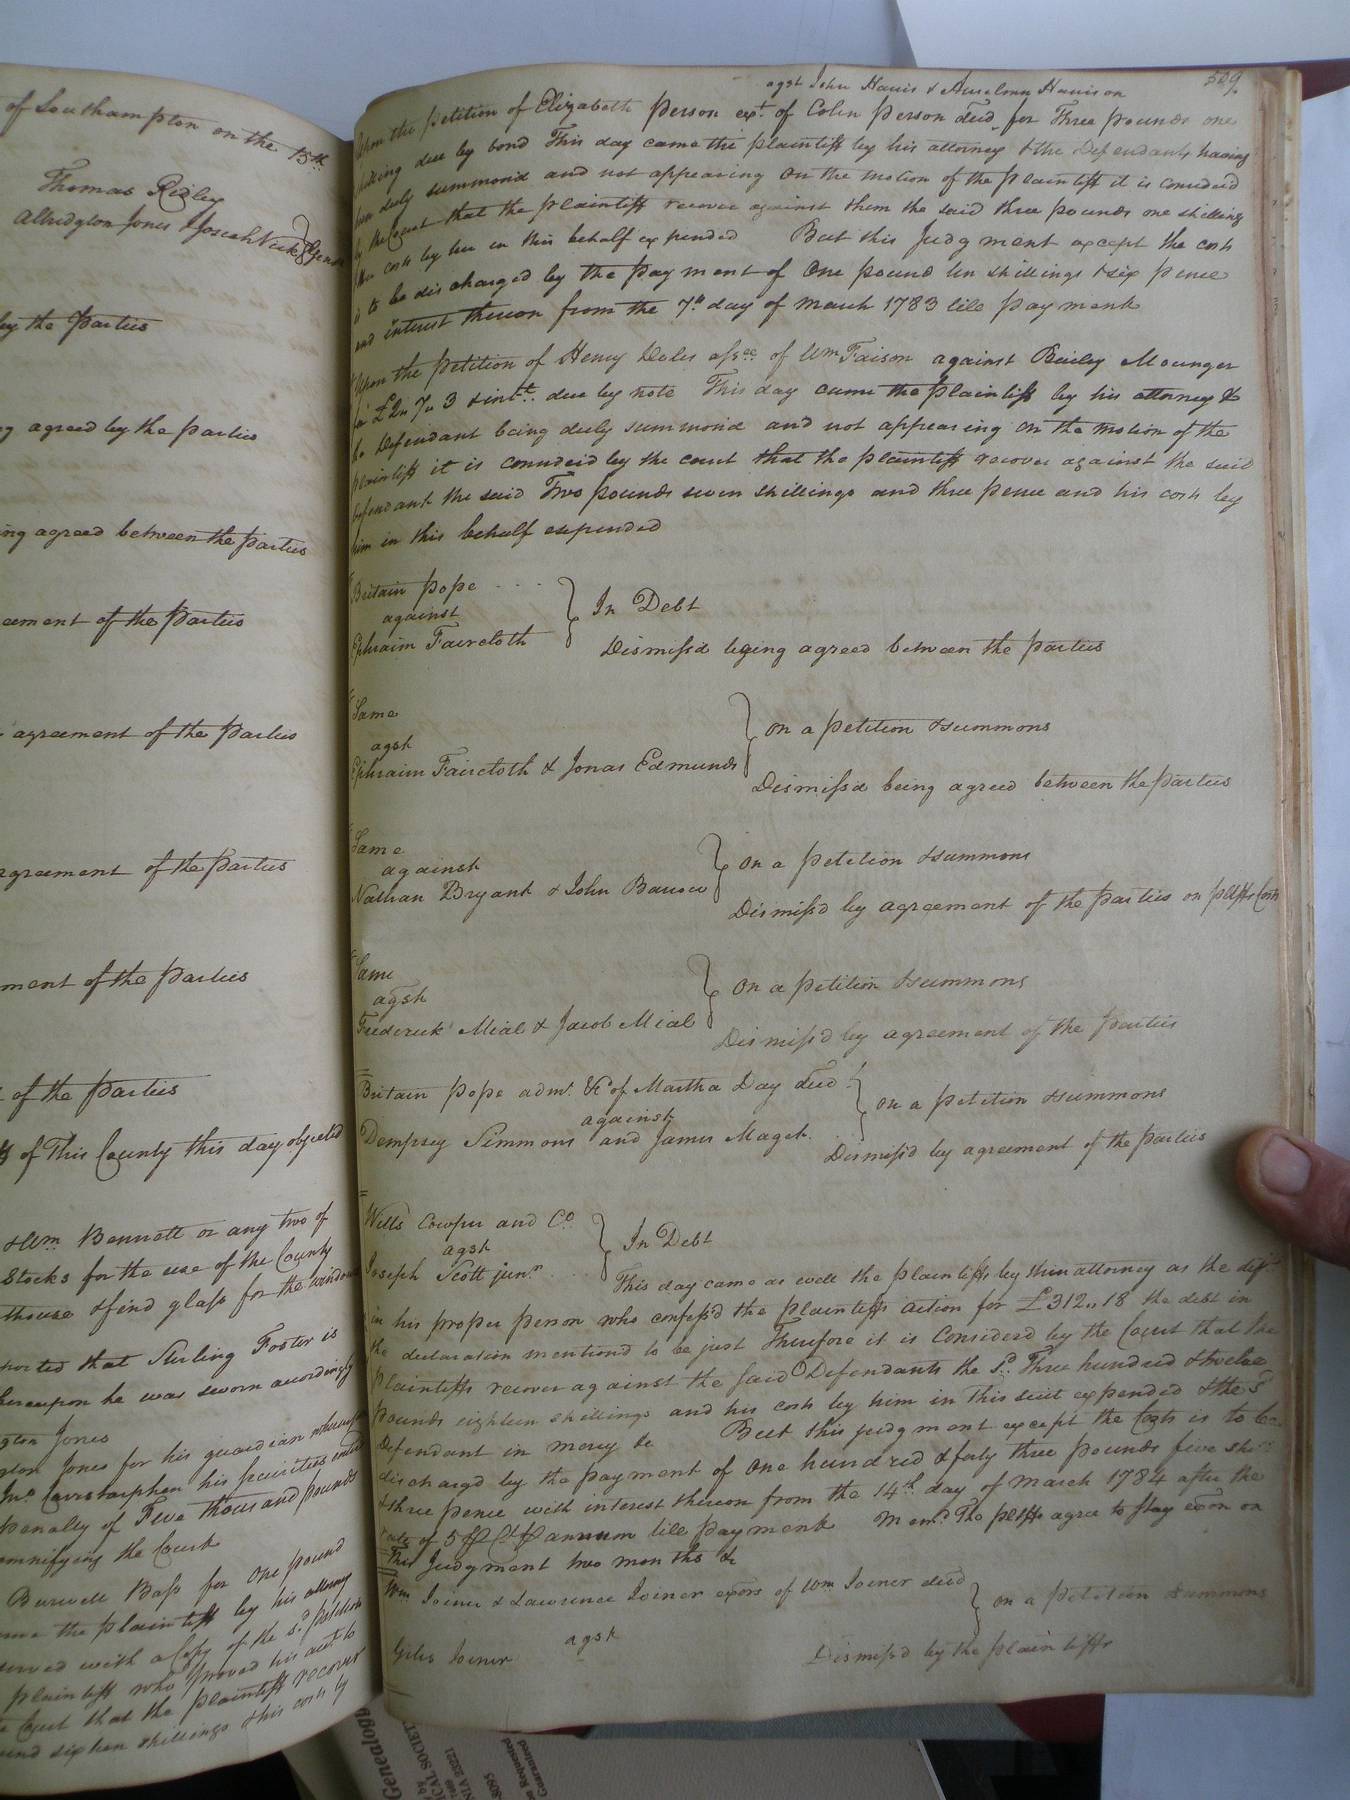 of Southampton on the 15th
Thomas Ridley
Albridgton Jones & Josiah Vick } Gent
by the Parties
agreed by the parties
ing agreed between the parties
eement of the Parties
agreement of the Parties
agreement of the Parties
ment of the Parties
of the Parties
of This County this day objected
& Wm Bennett or any two of
Stocks for the use of the County
thouse & find glass for the windows
ported that Sterling Foster is
hereupon he was sworn accordingly
Jones
Jones for his guardian whereupon
his securities
penalty of Five thousand pounds
emnifying the Court
Burwell Bass for One pound
came the plaintiff by his attorney
served with a Copy of the sd. petition
plaintiff who proved his acct to
Court that the plaintiff recover
and sixteen shillings & his costs by
529.
agst John Harris & Anselmn Harrison
Upon the petition of Elizabeth Person exx. of Colin Person decd. for Three pounds one
shilling due by bond This day came the plaintiff by his attorney & the Defendants having
been duly summond and not appearing On the motion of the plaintiff it is considerd
by the Court that the plaintiff recover against them the said three pounds one shilling
& her costs by her in this behalf expended But this Judgment except the costs
is to be discharged by the payment of One pound ten shillings & six pence
and interest thereon from the 7th day of march 1783 till payment
Upon the petition of Henry Dales assee. of Wm Faison against Bailey Mounger
for £2.. 7.. 3 & intt. due by note This day came the plaintiff by his attorney &
the Defendant being duly summond and not appearing On the motion of the
plaintiff it is considerd by the court that the plaintiff recover against the said
defendant the said Two pounds seven shillings and three pence and his costs by
him in this behalf expended
Britain Pope
against
Ephraim Faircloth } In Debt
Dismiss'd being agreed between the parties
Same
agst
Ephraim Faircloth & Jonas Edmunds } On a petition & summons
Dismiss'd being agreed between the parties
Same
against
Nathan Bryant & John Barrow } On a petition & summons
Dismiss'd by agreement of the Parties on pltffs Costs
Same
agst
Frederick Mial & Jacob Mial } On a petition & summons
Dismiss'd by agreement of the parties
Britain Pope admr. &c of Martha Day decd.
against
Dempsey Simmons and James Maget. } On a petition & summons
Dismiss'd by agreement of the parties
Wills Cowper and Co.
agst
Joseph Scott junr. } In Debt
This day came as well the plaintiffs by their attorney as the deft
in his proper person who confess'd the plaintiffs action for £312..18 the debt in
the declaration mentiond to be just Therefore it is Considerd by the Court that the
plaintiffs recover against the said Defendants the sd. Three hundred & twelve
pounds eighteen shillings and his costs by him in this suit expended & the sd
Defendant in mercy &c But this judgment except the Costs is to be
dischargd by the payment of One hundred & forty three pounds five shi
& three pence with interest thereon from the 14th. day of march 1784 after the
rate of 5 P Ct P annum till payment Memo. The pltffs agree to stay exon on
This Judgment two months &c
Wm Joiner & Lawrence Joiner exors of Wm Joiner decd
agst
Giles Joiner } On a petition & summons
Dismiss'd by the plaintiffs
Genealogy